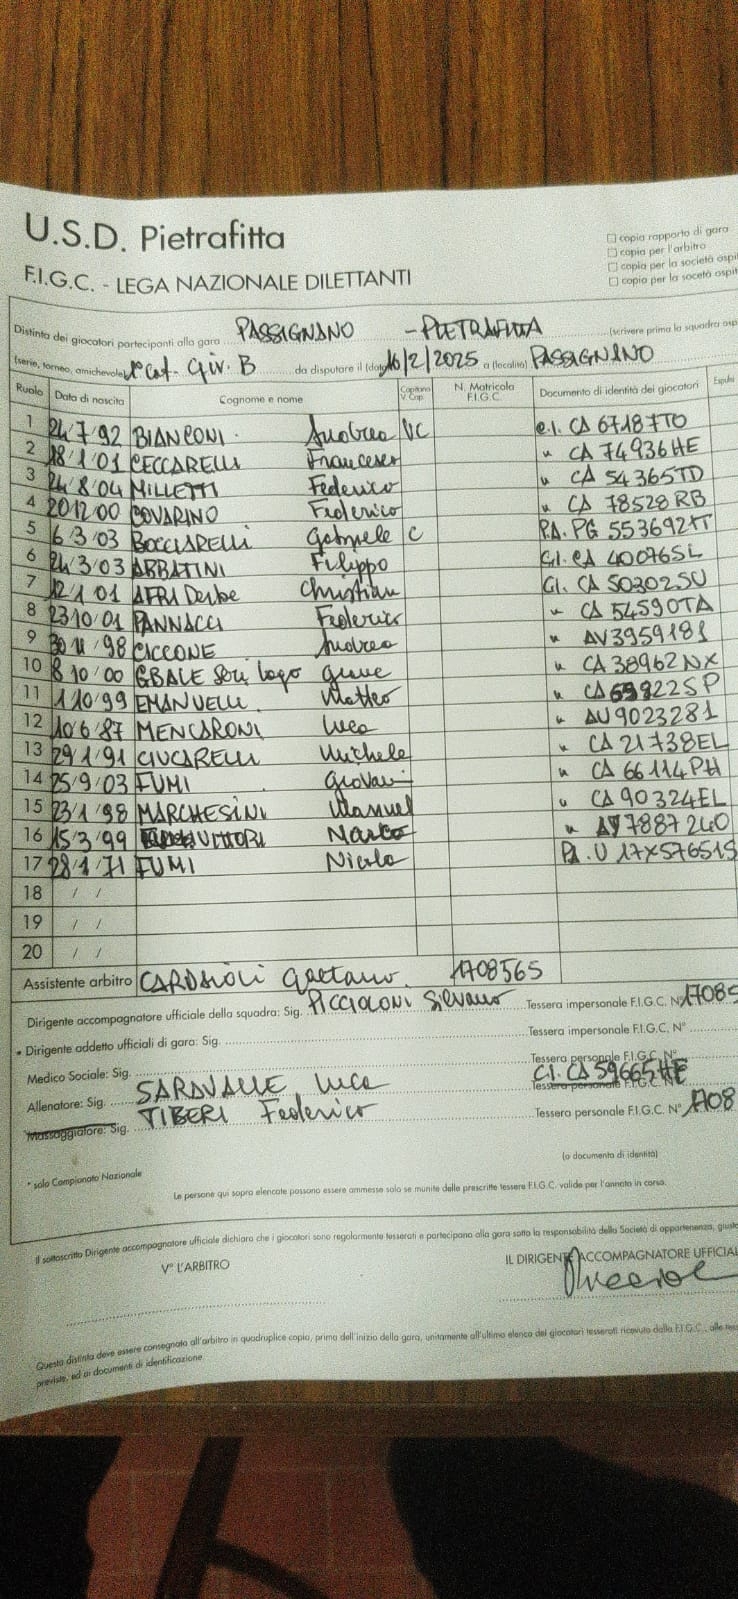 U.S.D. Pietrafitta
F.I.G.C. - LEGA NAZIONALE DILETTANTI
☐ copia rapporto di gara
☐ copia per l'arbitro
☐ copia per la società ospi
☐ copia per la socetà ospit
Distinta dei giocatori partecipanti alla gara PASSIGNANO - PIETRAFITTA (scrivere prima la squadra osp
(serie, torneo, amichevole) 1ª Cat. Gir. B da disputare il (data) 16/2/2025 a (località) PASSIGNANO
Ruolo Data di nascita Cognome e nome Capitano V. Cap. N. Matricola F.I.G.C. Documento di identità dei giocatori Espulsi
1 24/7/92 BIANCONI Andrea VC C.I. CA 67187TO
2 18/1/01 CECCARELLI Francesco " CA 74936HE
3 24/8/04 MILLETTI Federico " CA 54365TD
4 20/12/00 COVARINO Federico " CA 78528RB
5 6/3/03 BOCCIARELLI Gabriele C P.A. PG 553692
6 24/3/03 ABBATINI Filippo C.I. CA 40076SL
7 12/1/01 AFRI Christian C.I. CA 50302SU
8 23/10/01 PANNACCI Federico " CA 54590TA
9 30/11/98 CICCONE Andrea " AV3959181
10 8/10/00 GBALE " CA38962NX
11 1/10/99 EMANUELLI Matteo " CA 22SP
12 10/6/87 MENCARONI Luca " AU9023281
13 29/1/91 CIUCARELLI Michele " CA 21738EL
14 25/9/03 FUMI Giovanni " CA 66114PH
15 23/1/98 MARCHESINI Manuel " CA 90324EL
16 15/3/99 VITTORI Marco " 7887240
17 28/1/71 FUMI Nicola PA. U 17X57651S
18 / /
19 / /
20 / /
Assistente arbitro CARDAIOLI Gaetano 1708565
Dirigente accompagnatore ufficiale della squadra: Sig. PICCIOLONI Silvano Tessera impersonale F.I.G.C. N° 17085
* Dirigente addetto ufficiali di gara: Sig. Tessera impersonale F.I.G.C. N°
Medico Sociale: Sig. Tessera personale F.I.G.C. N°
Allenatore: Sig. SARAVALLE Luca C.I. CA 59665HE Tessera personale F.I.G.C. N°
Massaggiatore: Sig. TIBERI Federico Tessera personale F.I.G.C. N° 1708
(o documento di identità)
* solo Campionato Nazionale
Le persone qui sopra elencate possono essere ammesse solo se munite delle prescritte tessere F.I.G.C. valide per l'annata in corso.
Il sottoscritto Dirigente accompagnatore ufficiale dichiara che i giocatori sono regolarmente tesserati e partecipano alla gara sotto la responsabilità della Società di appartenenza, giusto
V° L'ARBITRO
IL DIRIGENTE ACCOMPAGNATORE UFFICIAL
Questa distinta deve essere consegnata all'arbitro in quadruplice copia, prima dell'inizio della gara, unitamente all'ultimo elenco dei giocatori tesserati ricevuto dalla F.I.G.C., alle tess
previste, ed ai documenti di identificazione.